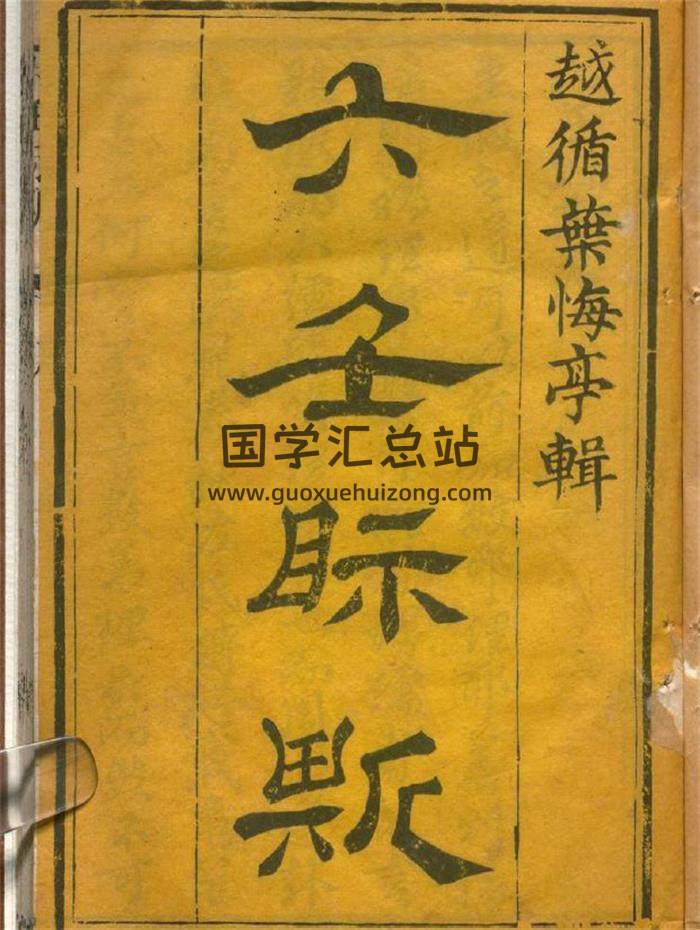 越循葉悔亭輯
六壬眎斯
国学汇总站
www.guoxuehuizong.com